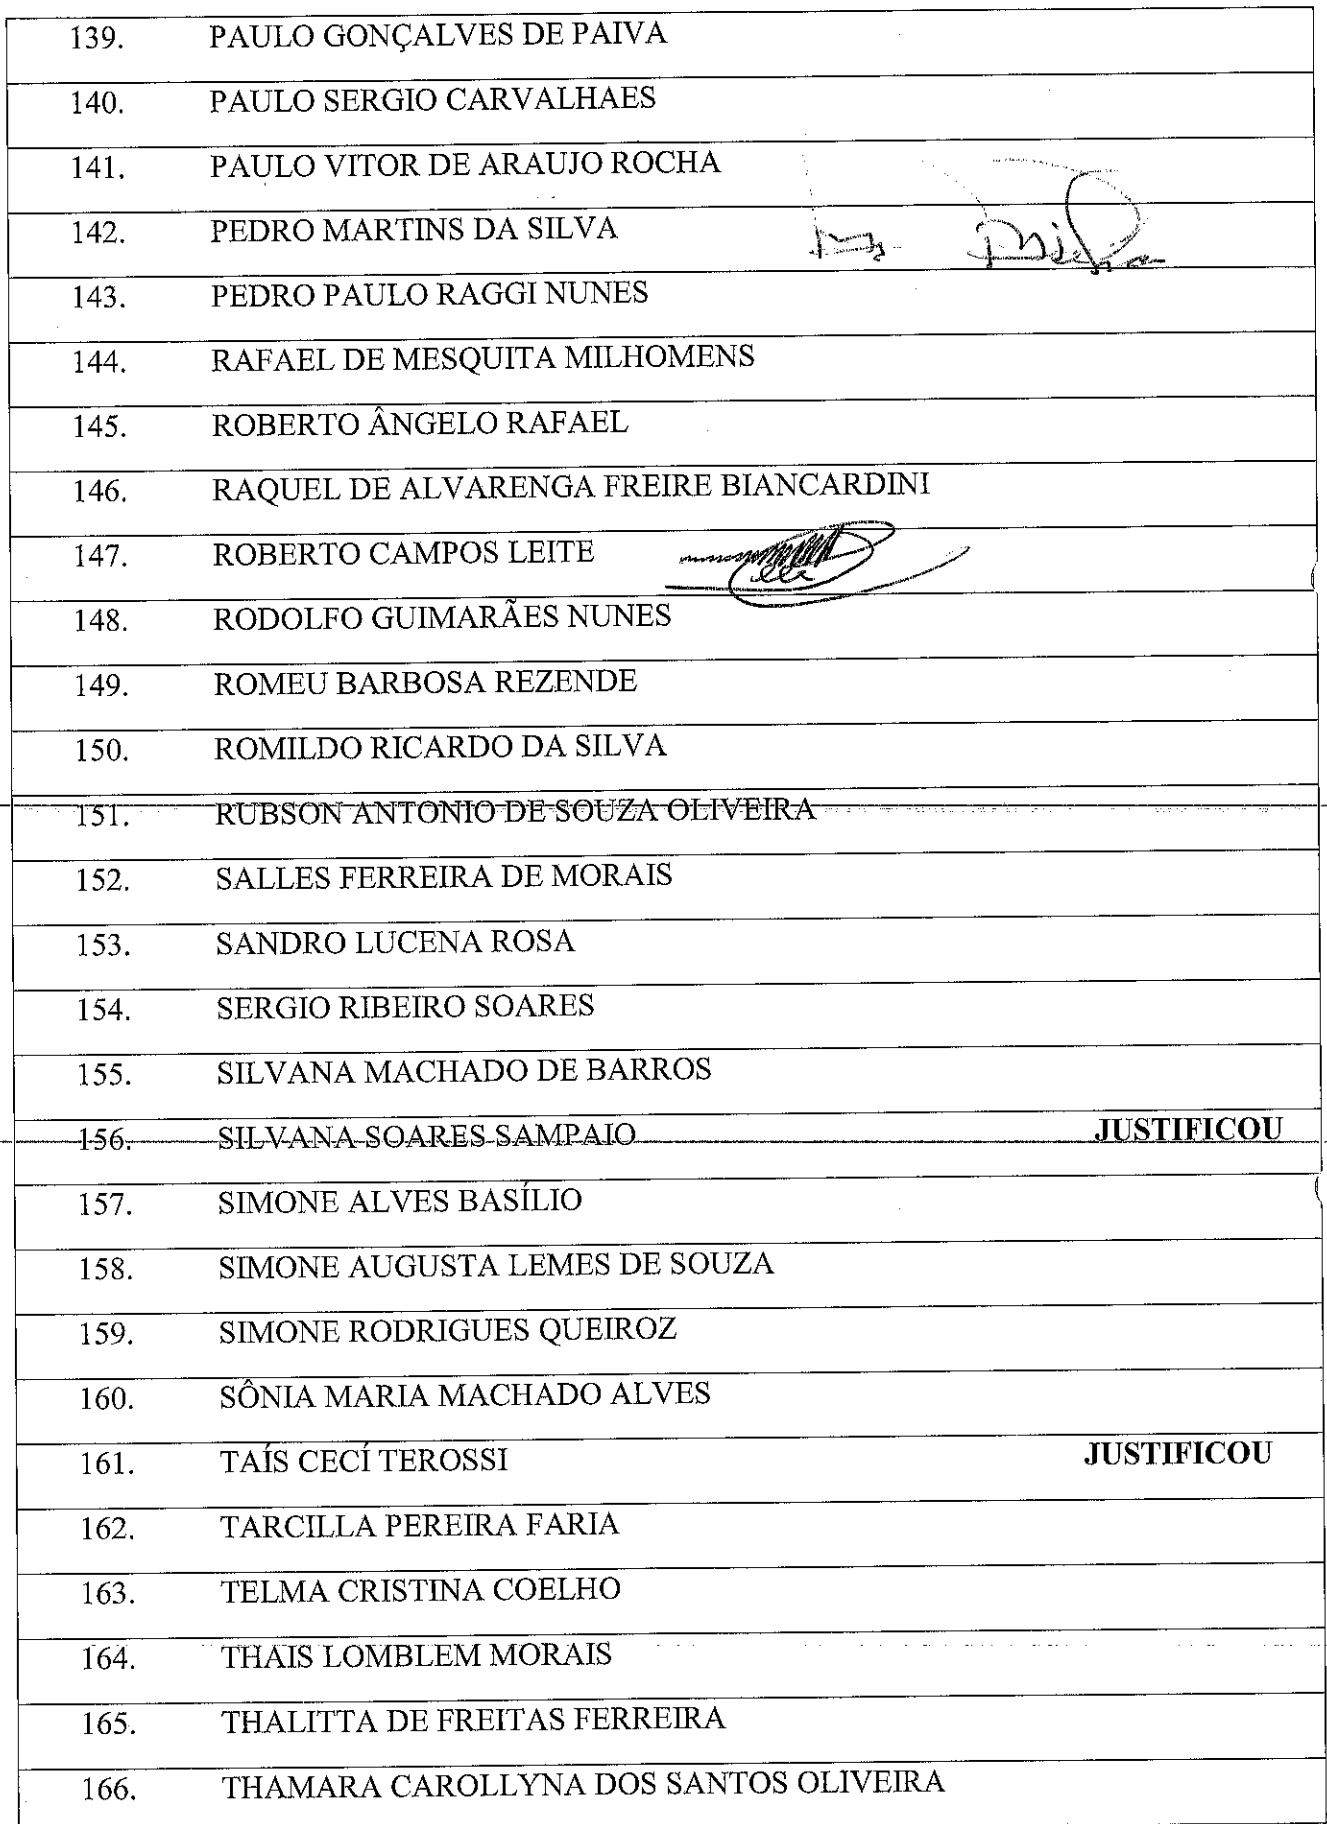 139. PAULO GONÇALVES DE PAIVA
140. PAULO SERGIO CARVALHAES
141. PAULO VITOR DE ARAUJO ROCHA
142. PEDRO MARTINS DA SILVA
143. PEDRO PAULO RAGGI NUNES
144. RAFAEL DE MESQUITA MILHOMENS
145. ROBERTO ÂNGELO RAFAEL
146. RAQUEL DE ALVARENGA FREIRE BIANCARDINI
147. ROBERTO CAMPOS LEITE
148. RODOLFO GUIMARÃES NUNES
149. ROMEU BARBOSA REZENDE
150. ROMILDO RICARDO DA SILVA
151. RUBSON ANTONIO DE SOUZA OLIVEIRA
152. SALLES FERREIRA DE MORAIS
153. SANDRO LUCENA ROSA
154. SERGIO RIBEIRO SOARES
155. SILVANA MACHADO DE BARROS
156. SILVANA SOARES SAMPAIO JUSTIFICOU
157. SIMONE ALVES BASÍLIO
158. SIMONE AUGUSTA LEMES DE SOUZA
159. SIMONE RODRIGUES QUEIROZ
160. SÔNIA MARIA MACHADO ALVES
161. TAÍS CECÍ TEROSSI JUSTIFICOU
162. TARCILLA PEREIRA FARIA
163. TELMA CRISTINA COELHO
164. THAIS LOMBLEM MORAIS
165. THALITTA DE FREITAS FERREIRA
166. THAMARA CAROLLYNA DOS SANTOS OLIVEIRA